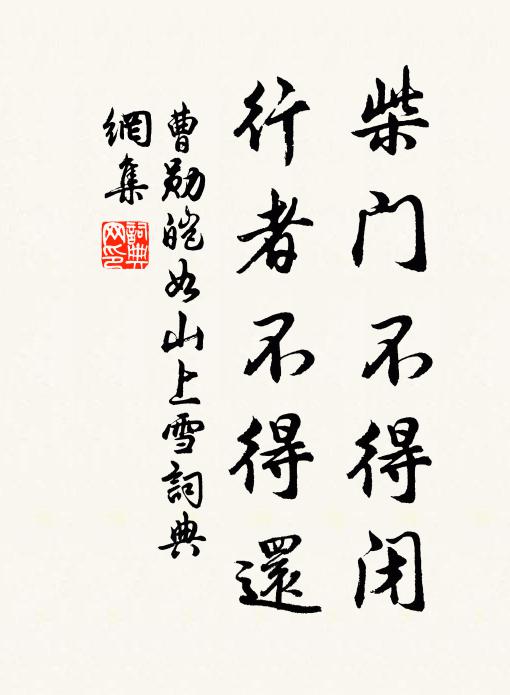 柴門不得閉
行者不得還
曹勛皚如山上雪詞典
網集
詞典
网印